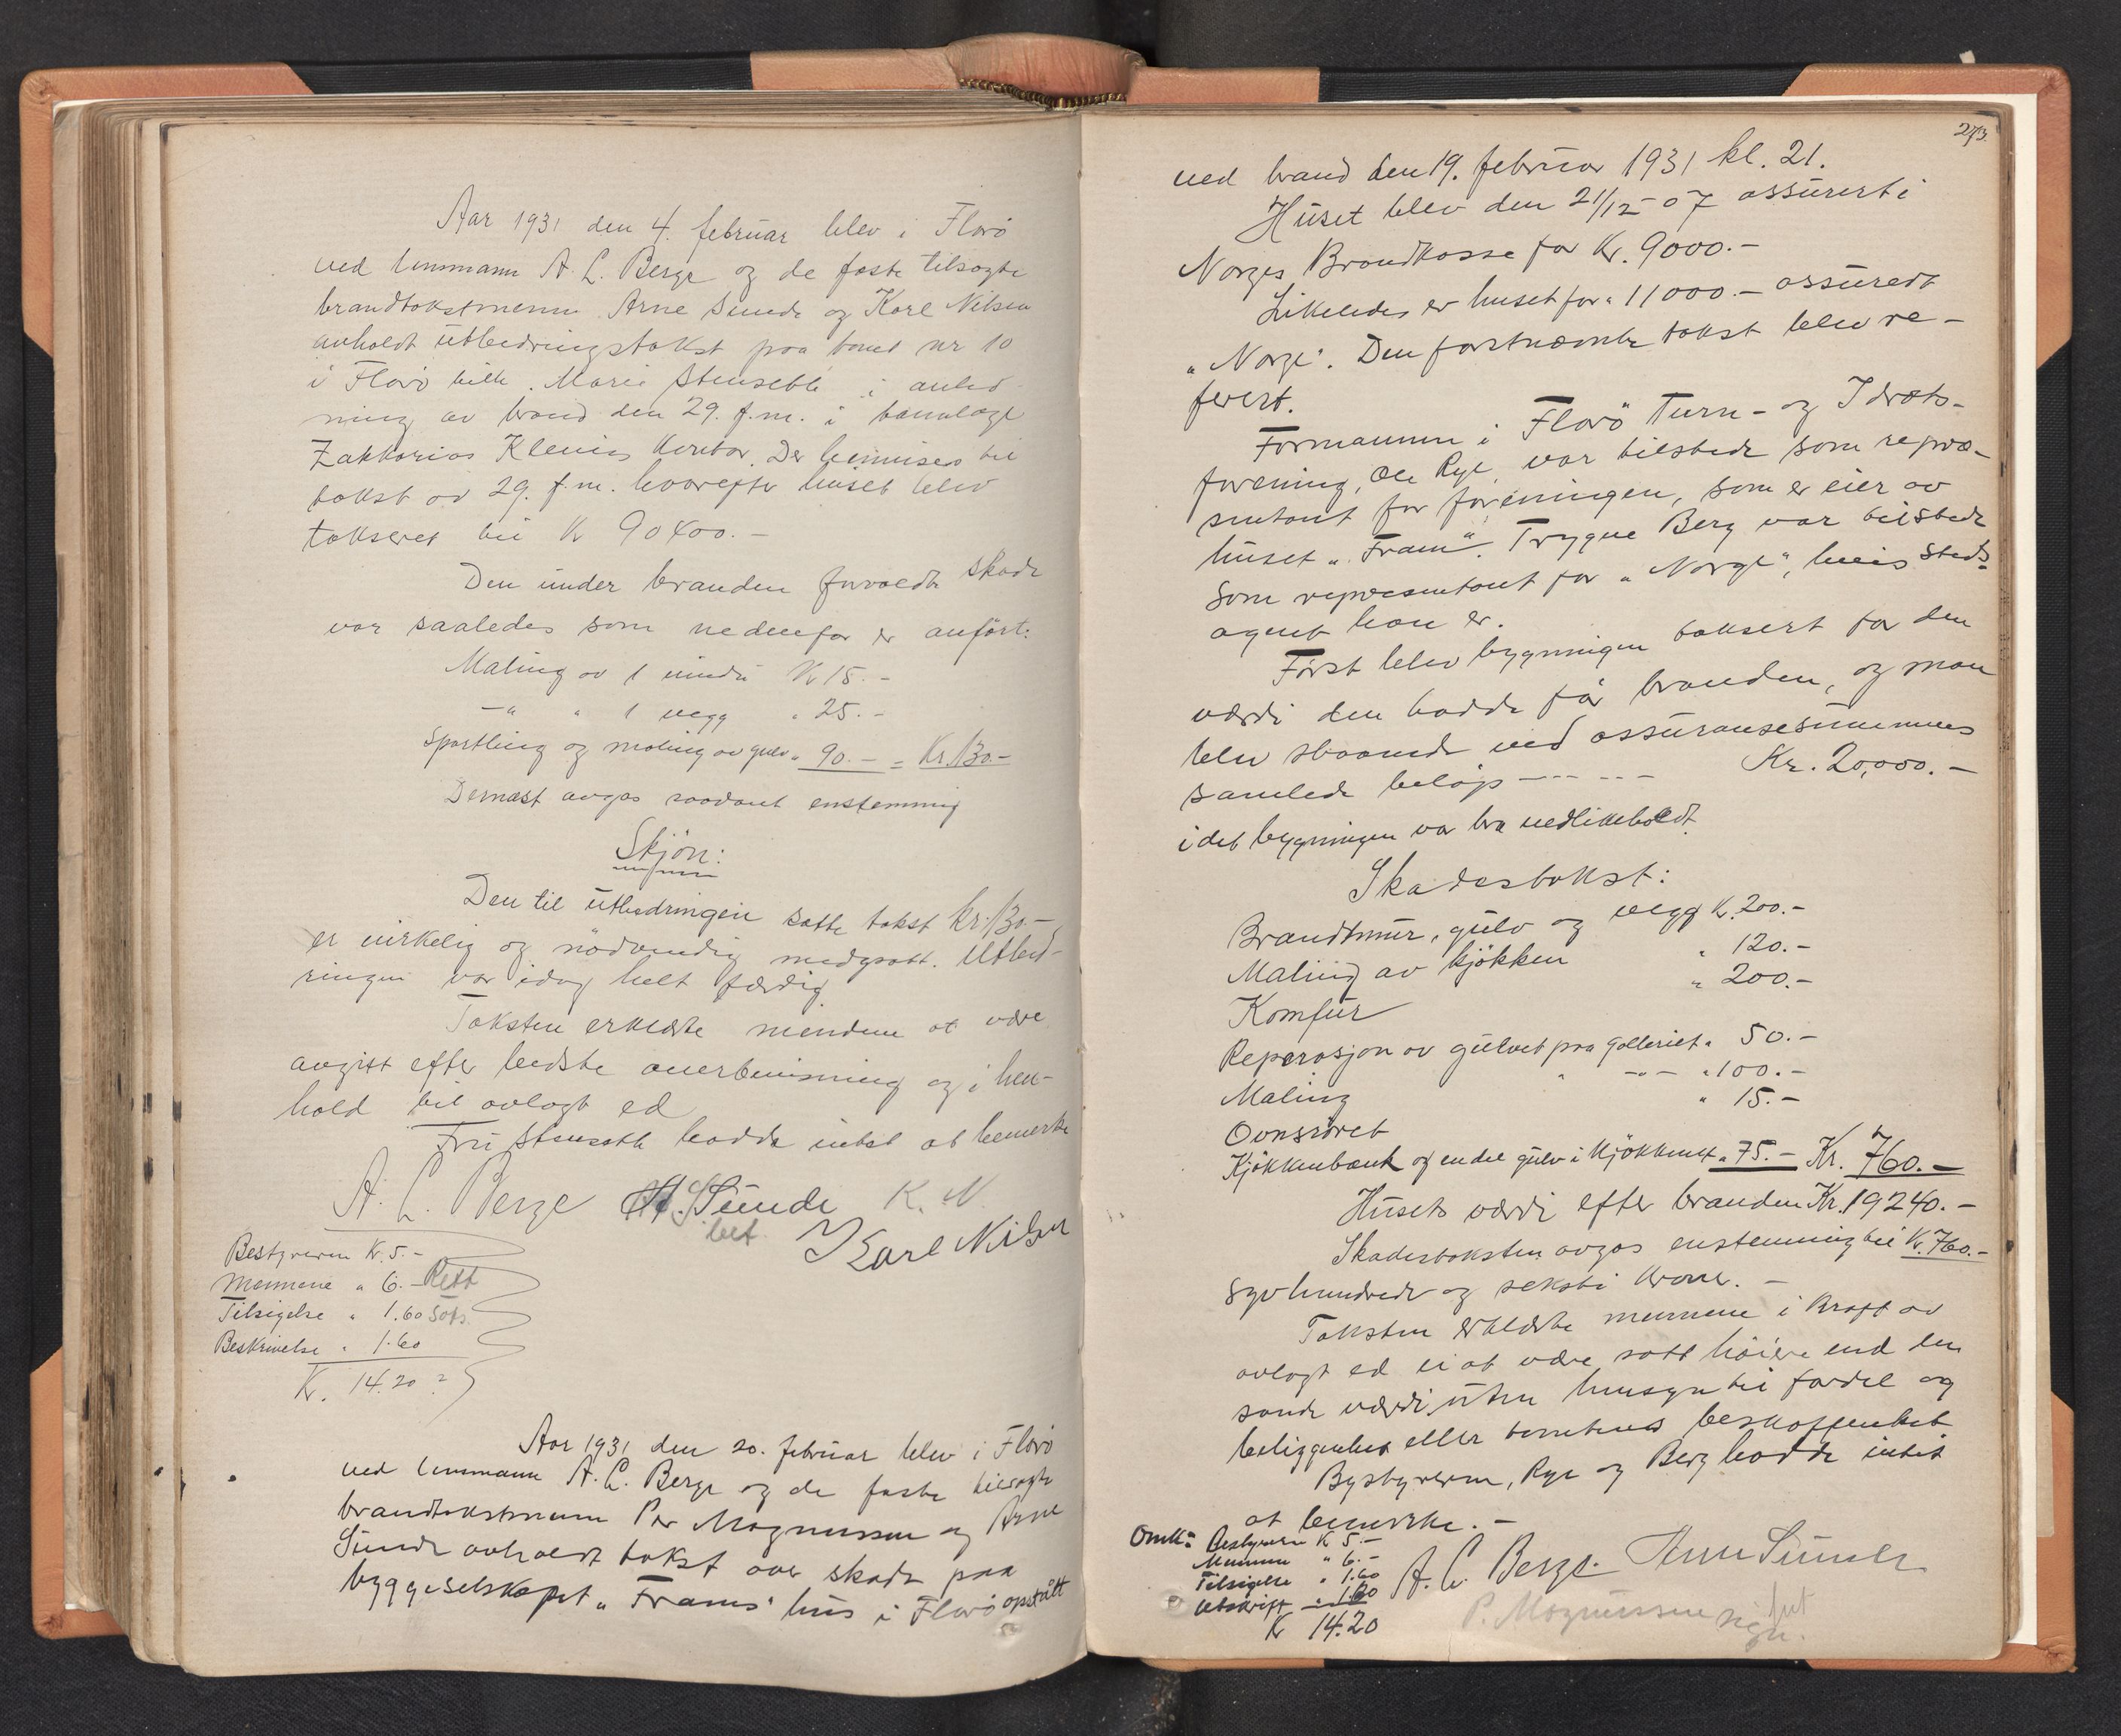 Aar 1931 den 4. februar blev i Florö
ved lensmann A. L. Berge og de faste tilsagte
brandtakstmenn Arne Sunde og Karl Nilsen
avholdt utbedringstakst paa tomt nr 10
i Florö tilh. Marie Stenseth i anled-
ning av brand den 29. f.m. i banlage
Zakkarias Klevis kontor. Der henvises til
takst av 29. f.m. hvorefter huset blev
taksert til Kr 90400.-
Den under branden forvoldte skade
var saaledes som nedenfor er anfört:
Maling av 1 vindu Kr 15.-
-"- " 1 vegg " 25.-
Spartling og maling av gulv " 90.- = Kr. 130.-
Dernæst avgas saadant enstemmig
Skjön:
Den til utbedringen satte takst kr. 130.-
er virkelig og nödvendig medgaatt. Utbed-
ringen var idag helt færdig.
Taksten erklærte mendene at være
avgitt efter bedste overbevisning og i hen-
hold til avlagt ed
Fru Stenseth hadde intet at bemerke
A. L. Berge A. Sunde K. N.
bet. Karl Nilsen
Bestyreren Kr. 5.-
Mennene " 6.- Rett
Tilsigelse " 1.60
Beskrivelse " 1.60
Kr. 14.20
Aar 1931 den 20. februar blev i Florö
ved lensmann A. L. Berge og de faste tilsagte
brandtakstmenn Per Magnussen og Arne
Sunde avholdt takst over skade paa
byggeselskapet "Frams" hus i Florö opstått
273.
ved brand den 19. februar 1931 kl. 21.
Huset blev den 21/12-07 assurert i
Norges Brandkasse for Kr. 9000.-
Likeledes er huset for " 11000.- assuredt
"Norge". Den förstnævnte takst blev re-
ferert.
Formannen i Florö Turn- og Idrats-
forening, Ole Rye, var tilstede som repræ-
sentant for foreningen, som er eier av
huset "Fram". Trygve Berg var tilstede
som repræsentant for "Norge", hvis steds-
agent han er.
Först blev bygningen taksert for den
værdi den hadde för branden, og man
blev staaende ved assuransesummens
samlede belöp - - - - - Kr. 20,000.-
idet bygningen var bra vedlikeholdt.
Skadestakst:
Brandtmur, gulv og vegg Kr. 200.-
Maling av kjökken " 120.-
Komfur " 200.-
Reparasjon av gulvet paa galleriet " 50.-
Maling " -"- " 100.-
Ovnsröret " 15.-
Kjökkenbænk og en del gulv i kjökkenet " 75.- Kr. 760.-
Husets værdi efter branden Kr. 19240.-
Skadestaksten avgas enstemmig til Kr. 760.-
syvhundrede og seksti kroner.-
Taksten erklærte mennene i kraft av
avlagt ed ei at være satt höiere end den
sande værdi uten hensyn til fordel og
beliggenhet eller tomtens beskaffenhet
Bystyreren, Rye og Berg hadde intet
at bemerke.-
Omk: Bestyreren Kr 5.-
Mennene " 6.-
Tilsigelse " 1.60
Utskrift " 1.60
Kr 14.20
A. L. Berge. Arne Sunde
P. Magnussen sign.